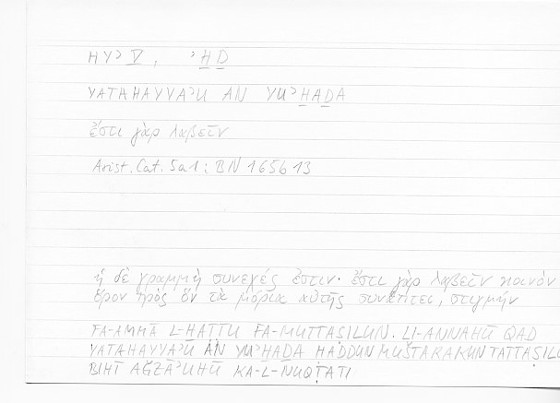 HYʾ V, ʾH̱Ḏ
YATAHAYYAʾU AN YUʾH̱AḎA
ἔστι γὰρ λαβεῖν
Arist. Cat. 5a1 : BN 165b13
ἡ δὲ γραμμὴ συνεχής ἐστιν· ἔστι γὰρ λαβεῖν κοινὸν
ὅρον πρὸς ὃν τὰ μόρια αὐτῆς συνάπτει, στιγμήν
FA-AMMĀ L-H̱AṬṬU FA-MUTTAṢILUN. LI-ANNAHŪ QAD
YATAHAYYAʾU AN YUʾH̱AḎA ḤADDUN MUŠTARAKUN TATTAṢILU
BIHĪ AǦZĀʾUHŪ KA-L-NUQṬATI